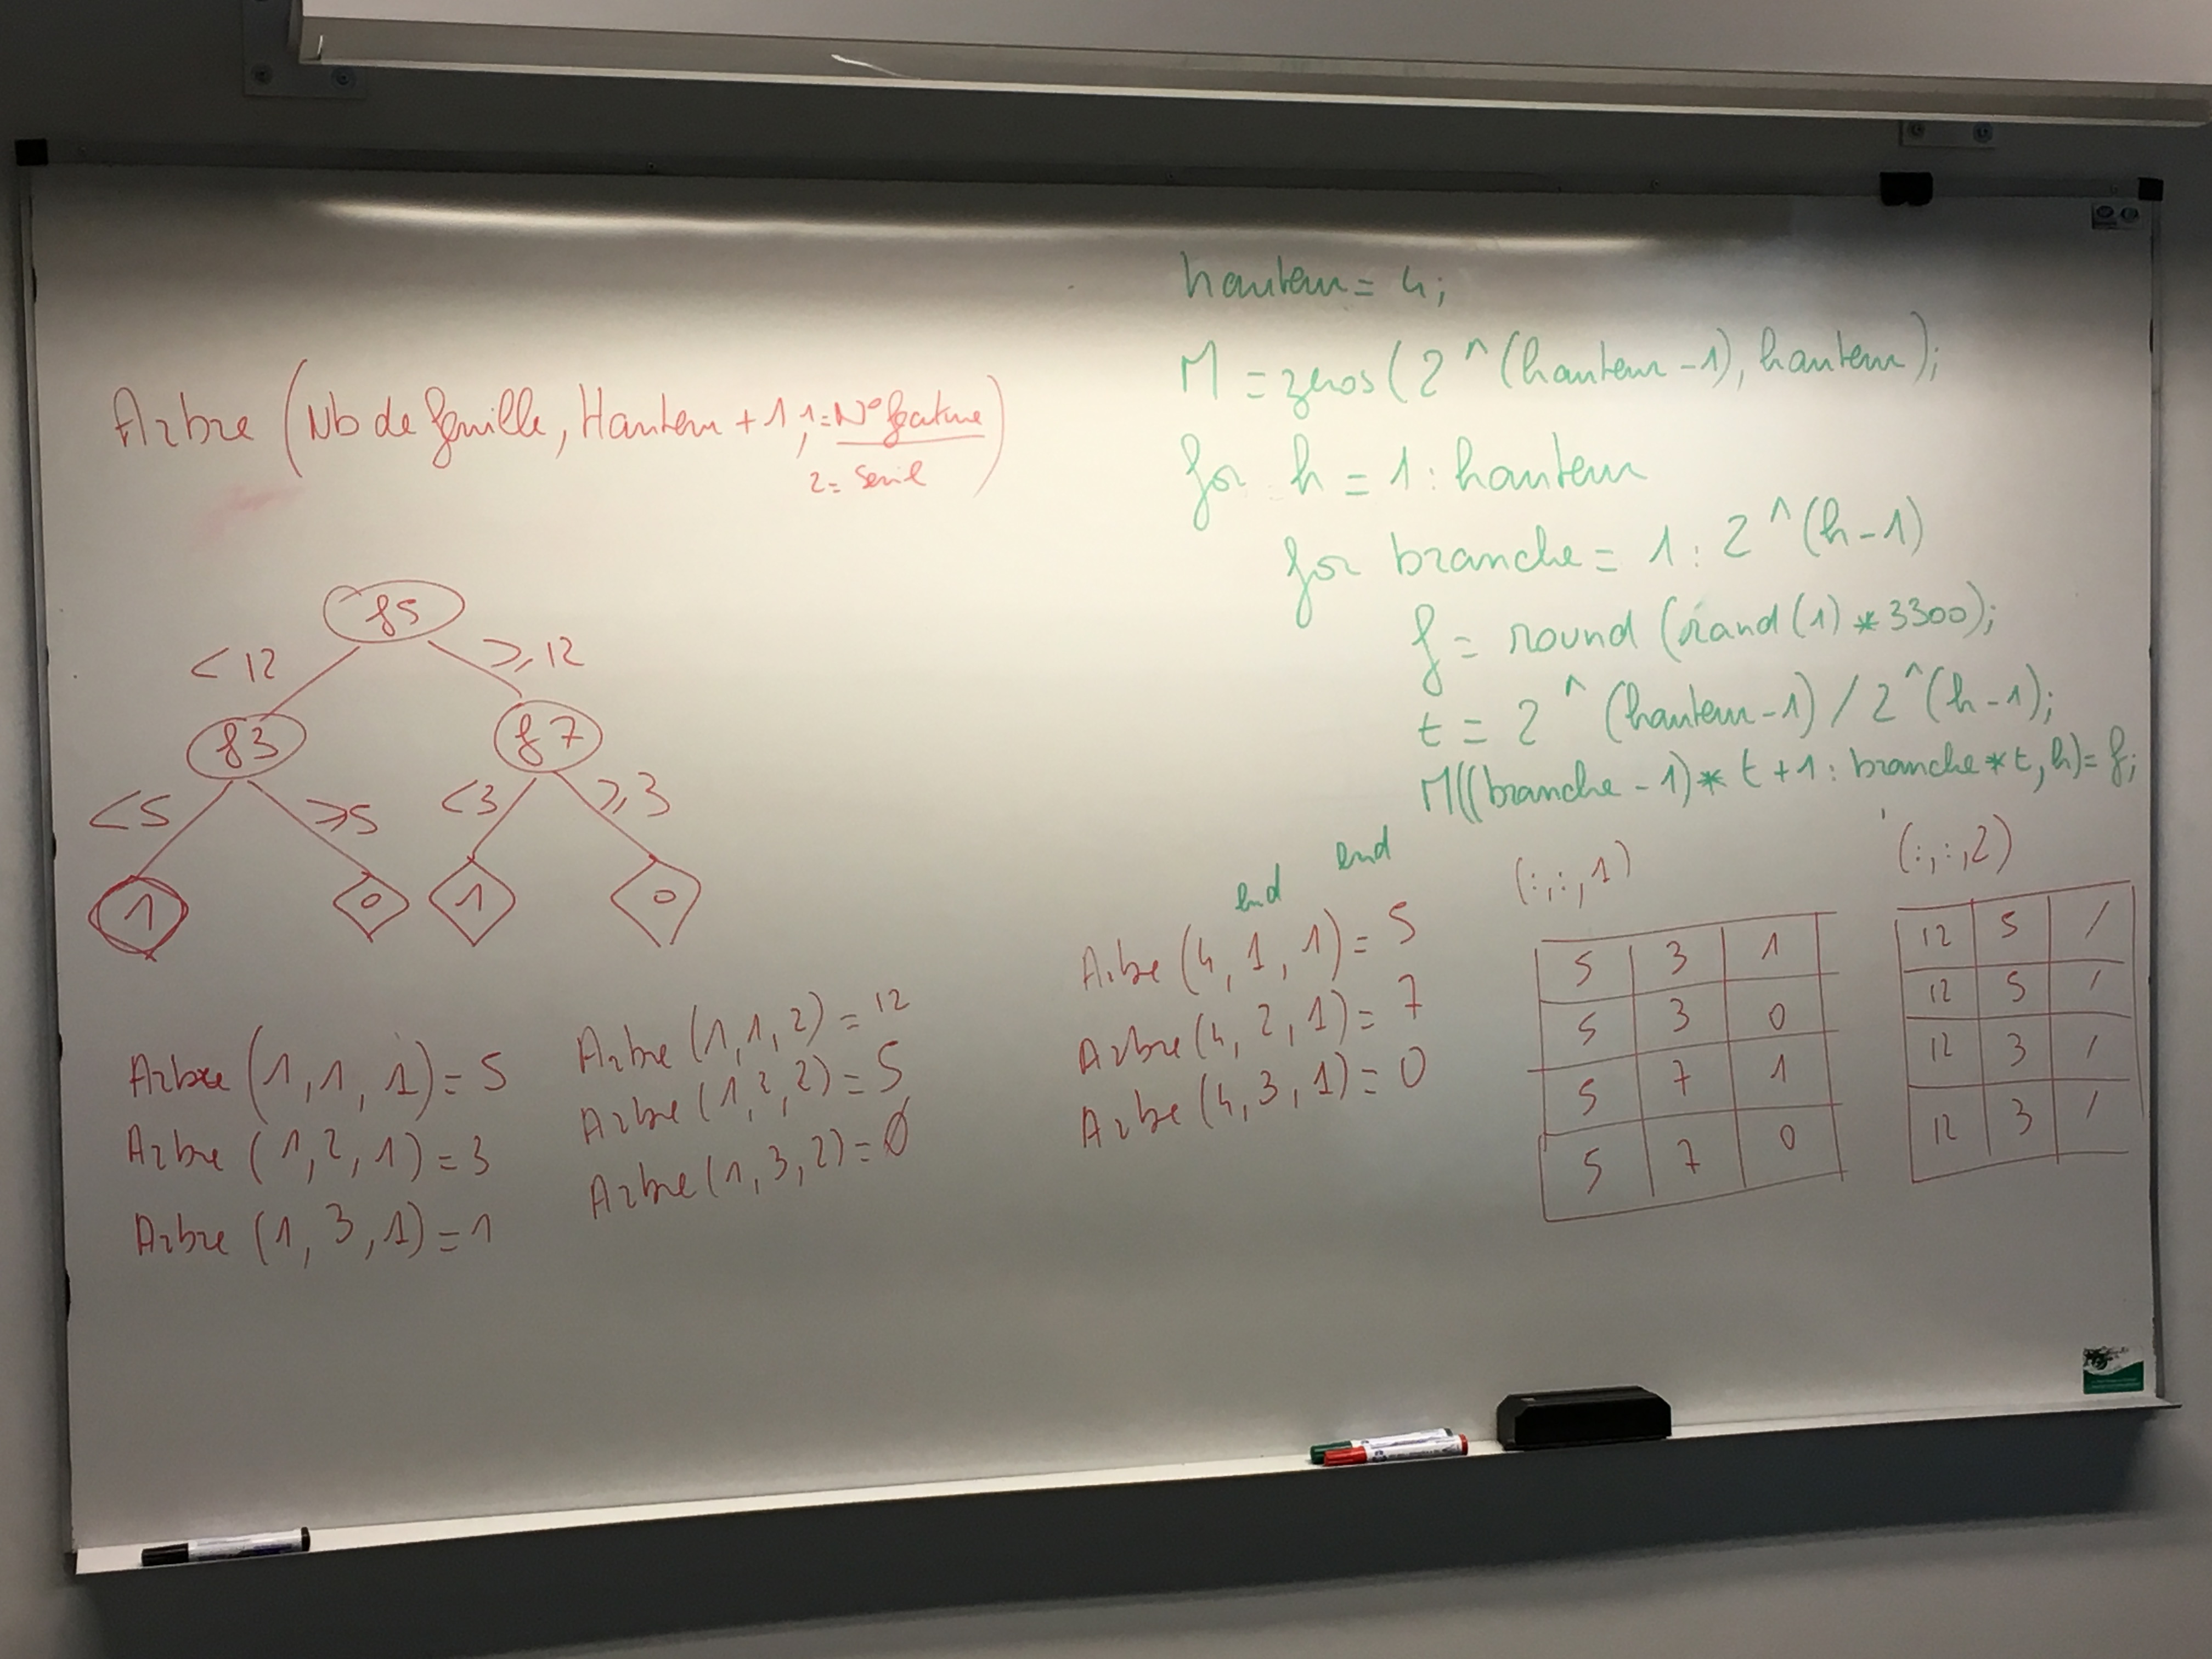 Arbre (Nb de feuille, Hauteur + 1, 1 = N° feature)
2 = seuil
f5
< 12
≥ 12
f3
f7
< 5
≥ 5
< 3
≥ 3
1
0
1
0
Arbre (1, 1, 1) = 5
Arbre (1, 2, 1) = 3
Arbre (1, 3, 1) = 1
Arbre (1, 1, 2) = 12
Arbre (1, 2, 2) = 5
Arbre (1, 3, 2) = Ø
hauteur = 4;
M = zeros(2^(hauteur-1), hauteur);
for h = 1 : hauteur
for branche = 1 : 2^(h-1)
f = round (rand(1) * 3300);
t = 2^(hauteur-1) / 2^(h-1);
M((branche-1)* t + 1 : branche * t, h) = f;
end
end
Arbre (4, 1, 1) = 5
Arbre (4, 2, 1) = 7
Arbre (4, 3, 1) = 0
(:,:,1)
5 3 1
5 3 0
5 7 1
5 7 0
(:,:,2)
12 5 /
12 5 /
12 3 /
12 3 /